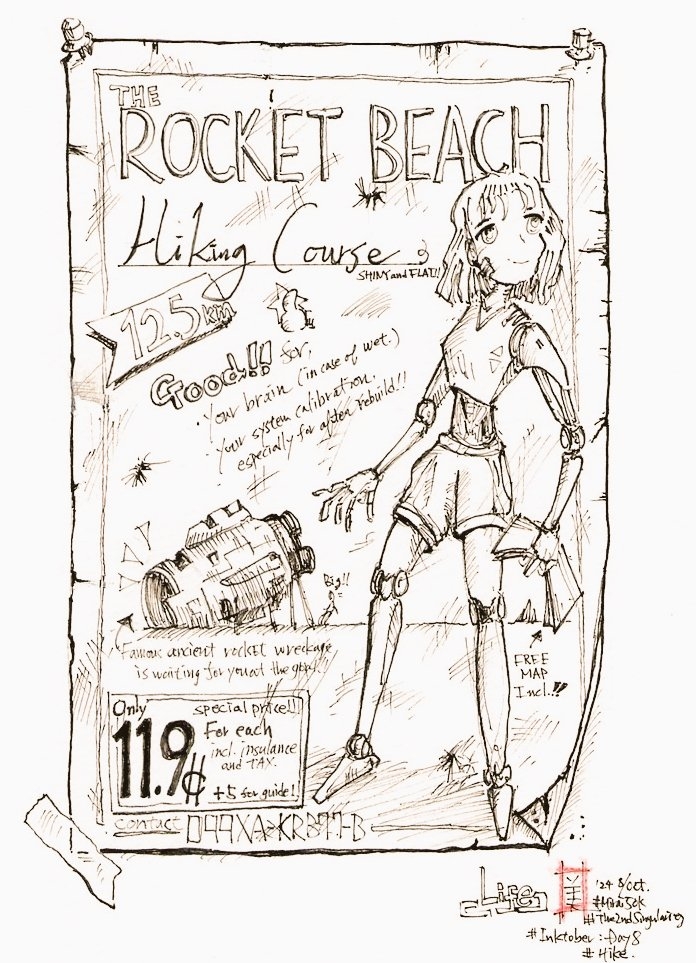 THE
ROCKET BEACH
Hiking Course
SHINY and FLAT!!
12.5km
Good!! for,
・Your brain (in case of wet.)
・your system calibration,
especially for after rebuild!!
Big!!
Famous ancient rocket wreckage
is waiting for you at the
FREE
MAP
Incl.!!
Only
special price!!
11.9¢
For each
incl. insulance
and TAX.
+5 for guide!
contact
Life
'24 8/Oct.
#Inktober : Day8
#Hike.